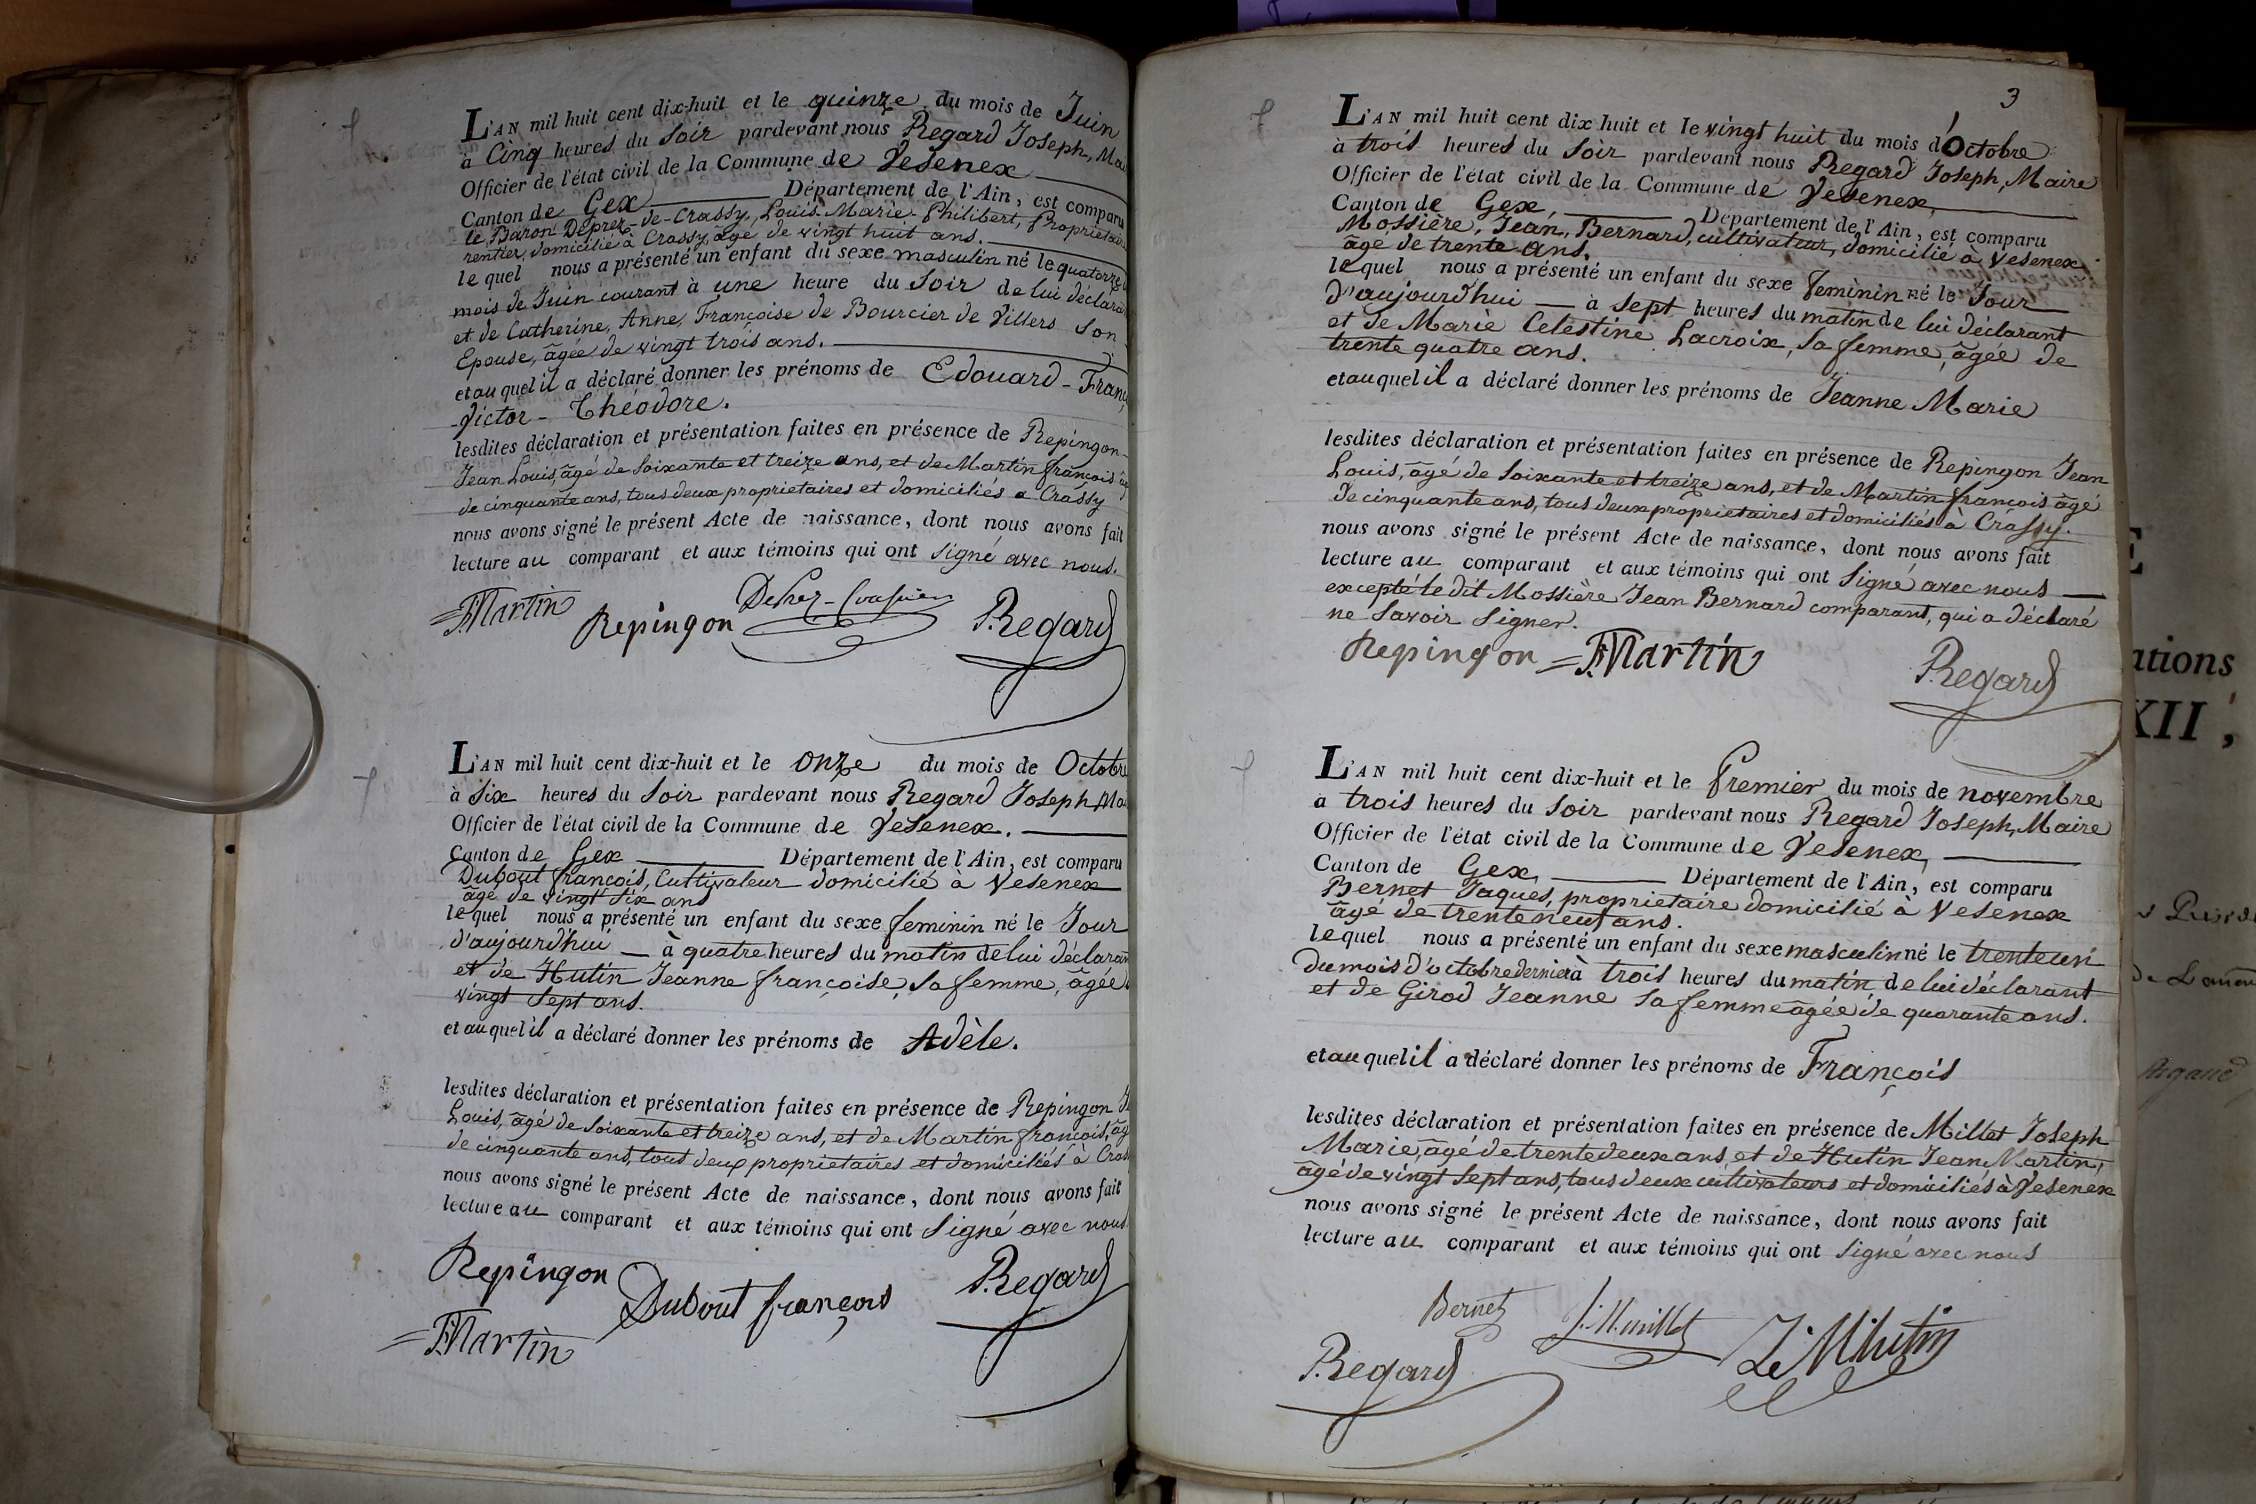 L'AN mil huit cent dix-huit et le quinze du mois de Juin
à Cinq heures du Soir pardevant nous Regard Joseph, Mai
Officier de l'état civil de la Commune de Vesenex
Canton de Gex Département de l'Ain, est comparu
le Baron Deprez-de-Crassy, Louis-Marie-Philibert, Propriétaire
rentier, domicilié à Crassy, âgé de vingt huit ans.
lequel nous a présenté un enfant du sexe masculin né le quatorze
mois de Juin courant à une heure du Soir de lui déclara
et de Catherine, Anne, Françoise de Bourcier de Villers Son
Epouse, âgée de vingt trois ans.
et au quel il a déclaré donner les prénoms de Edouard-Franç
Victor-Théodore.
lesdites déclaration et présentation faites en présence de Repingon
Jean Louis, âgé de Soixante et treize ans, et de Martin françois âg
de cinquante ans, tous deux proprietaires et domiciliés a Crassy
nous avons signé le présent Acte de naissance, dont nous avons fait
lecture au comparant et aux témoins qui ont Signé avec nous.
F.Martin Repingon Deprez-Crassier J.Regard
L'AN mil huit cent dix-huit et le onze du mois de Octobre
à Six heures du Soir pardevant nous Regard Joseph, Ma
Officier de l'état civil de la Commune de Vesenex.
Canton de Gex Département de l'Ain, est comparu
Dubout françois, Cultivateur domicilié à Vesenex
âgé de vingt Six ans
lequel nous a présenté un enfant du sexe feminin né le Jour
d'aujourd'hui à quatre heures du matin de lui déclaran
et de Hutin Jeanne françoise, Sa femme, âgée d
vingt Sept ans.
et au quel il a déclaré donner les prénoms de Adèle.
lesdites déclaration et présentation faites en présence de Repingon J
Louis, âgé de Soixante et treize ans, et de Martin françois, âg
de cinquante ans, tous deux proprietaires et domiciliés à Cras
nous avons signé le présent Acte de naissance, dont nous avons fait
lecture au comparant et aux témoins qui ont Signé avec nous.
Repingon Dubout françois J.Regard
F.Martin
3
L'AN mil huit cent dix huit et le vingt huit du mois d'Octobre
à trois heures du Soir pardevant nous Regard Joseph, Maire
Officier de l'état civil de la Commune de Vesenex,
Canton de Gex, Département de l'Ain, est comparu
Mossière, Jean, Bernard, cultivateur, domicilié à Vesenex
âgé de trente ans.
lequel nous a présenté un enfant du sexe feminin né le Jour
d'aujourd'hui à Sept heures du matin de lui déclarant
et de Marie Celestine Lacroix, Sa femme, âgée de
trente quatre ans.
et au quel il a déclaré donner les prénoms de Jeanne Marie
lesdites déclaration et présentation faites en présence de Repingon Jean
Louis, âgé de Soixante et treize ans, et de Martin françois âgé
de cinquante ans, tous deux proprietaires et domiciliés à Crassy.
nous avons signé le présent Acte de naissance, dont nous avons fait
lecture au comparant et aux témoins qui ont Signé avec nous
excepté le dit Mossière Jean Bernard comparant, qui a déclaré
ne Savoir Signer.
Repingon F.Martin J.Regard
L'AN mil huit cent dix-huit et le Premier du mois de novembre
a trois heures du Soir pardevant nous Regard Joseph, Maire
Officier de l'état civil de la Commune de Vesenex,
Canton de Gex, Département de l'Ain, est comparu
Bernet Jaques, proprietaire domicilié à Vesenex
âgé de trente neuf ans.
lequel nous a présenté un enfant du sexe masculin né le trente un
du mois d'octobre dernier à trois heures du matin de lui déclarant
et de Girod Jeanne Sa femme âgée de quarante ans.
et au quel il a déclaré donner les prénoms de François
lesdites déclaration et présentation faites en présence de Millet Joseph
Marie, âgé de trente deux ans et de Hutin Jean Martin,
âgé de vingt Sept ans, tous deux cultivateurs et domiciliés à Vesenex
nous avons signé le présent Acte de naissance, dont nous avons fait
lecture au comparant et aux témoins qui ont Signé avec nous
Bernet J.M.millet J.M.hutin
J.Regard
E
ations
XII,